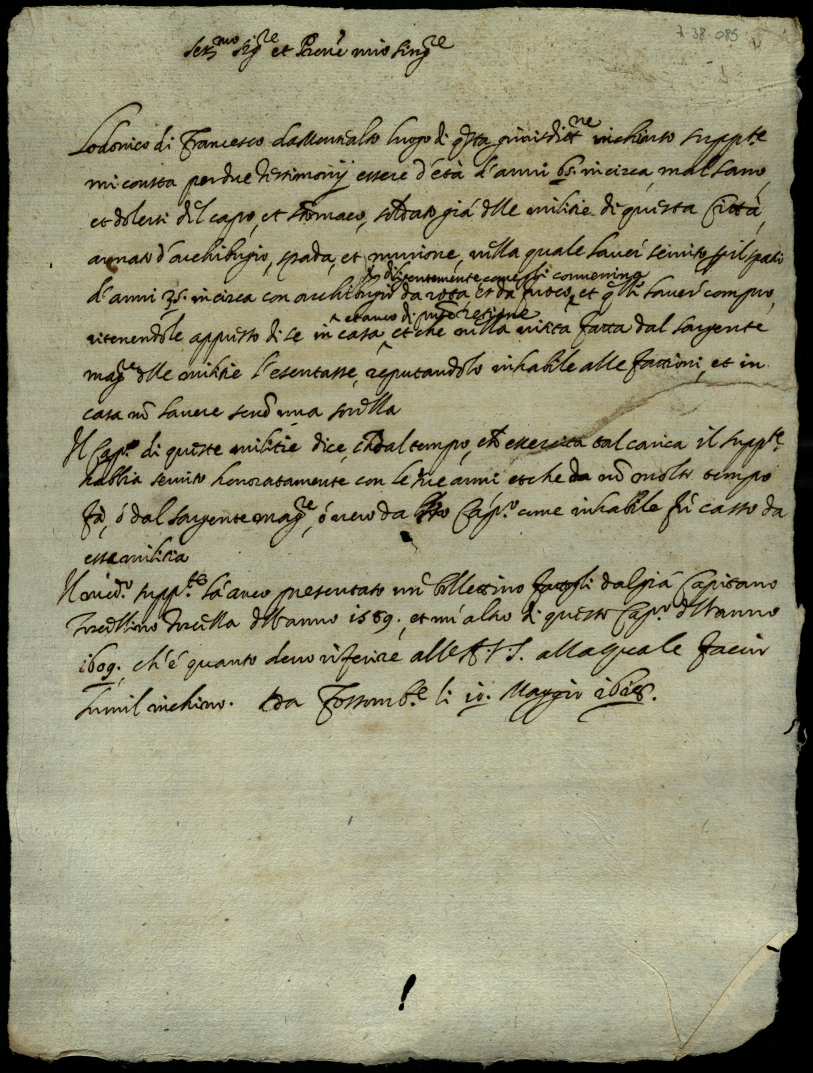 7-38-085
Ser.mo Sig.re et Prone mio sing.re
Lodovico di Francesco da Montalto luogo di q.sta giurisditt.ne inchinato supp.te
mi consta per due testimonij essere d'età d'anni 65. incirca, mal sano,
et dolersi del capo, et stomaco, soldato già delle militie di questa Città,
armato d'archibugio, spada, et murione, nella quale haver servito p il spatio
d'anni 35. incirca con archibugio da rota, et da fuoco, et q.lli haver compro,
decentemente come si conveniva
ritenendole appresso di se in casa, et che nella visita fatta dal sargente
et anco di
mag.re delle militie l'esentasse, reputandolo inhabile alle fattioni, et in
casa nō havere senō una sorella
Il Cap.o di queste militie dice, ch dal tempo, ch essercita tal carica il supp.te
habbia servito honoratamente con le sue armi et che da nō molto tempo
fà, ó dal sargente mag.re, ó vero da Cap.o come inhabile fù casso da
essa militia
Il med.o supp.te hà anco presentato un bollettino dal già Capitano
dell'anno 1589. et un' altro di questo Cap.o dell'anno
1609., ch'é quanto devo riferire all' A. V. S. alla quale faccio
humil inchino. da Fossomb.e li 10. Maggio 1618.